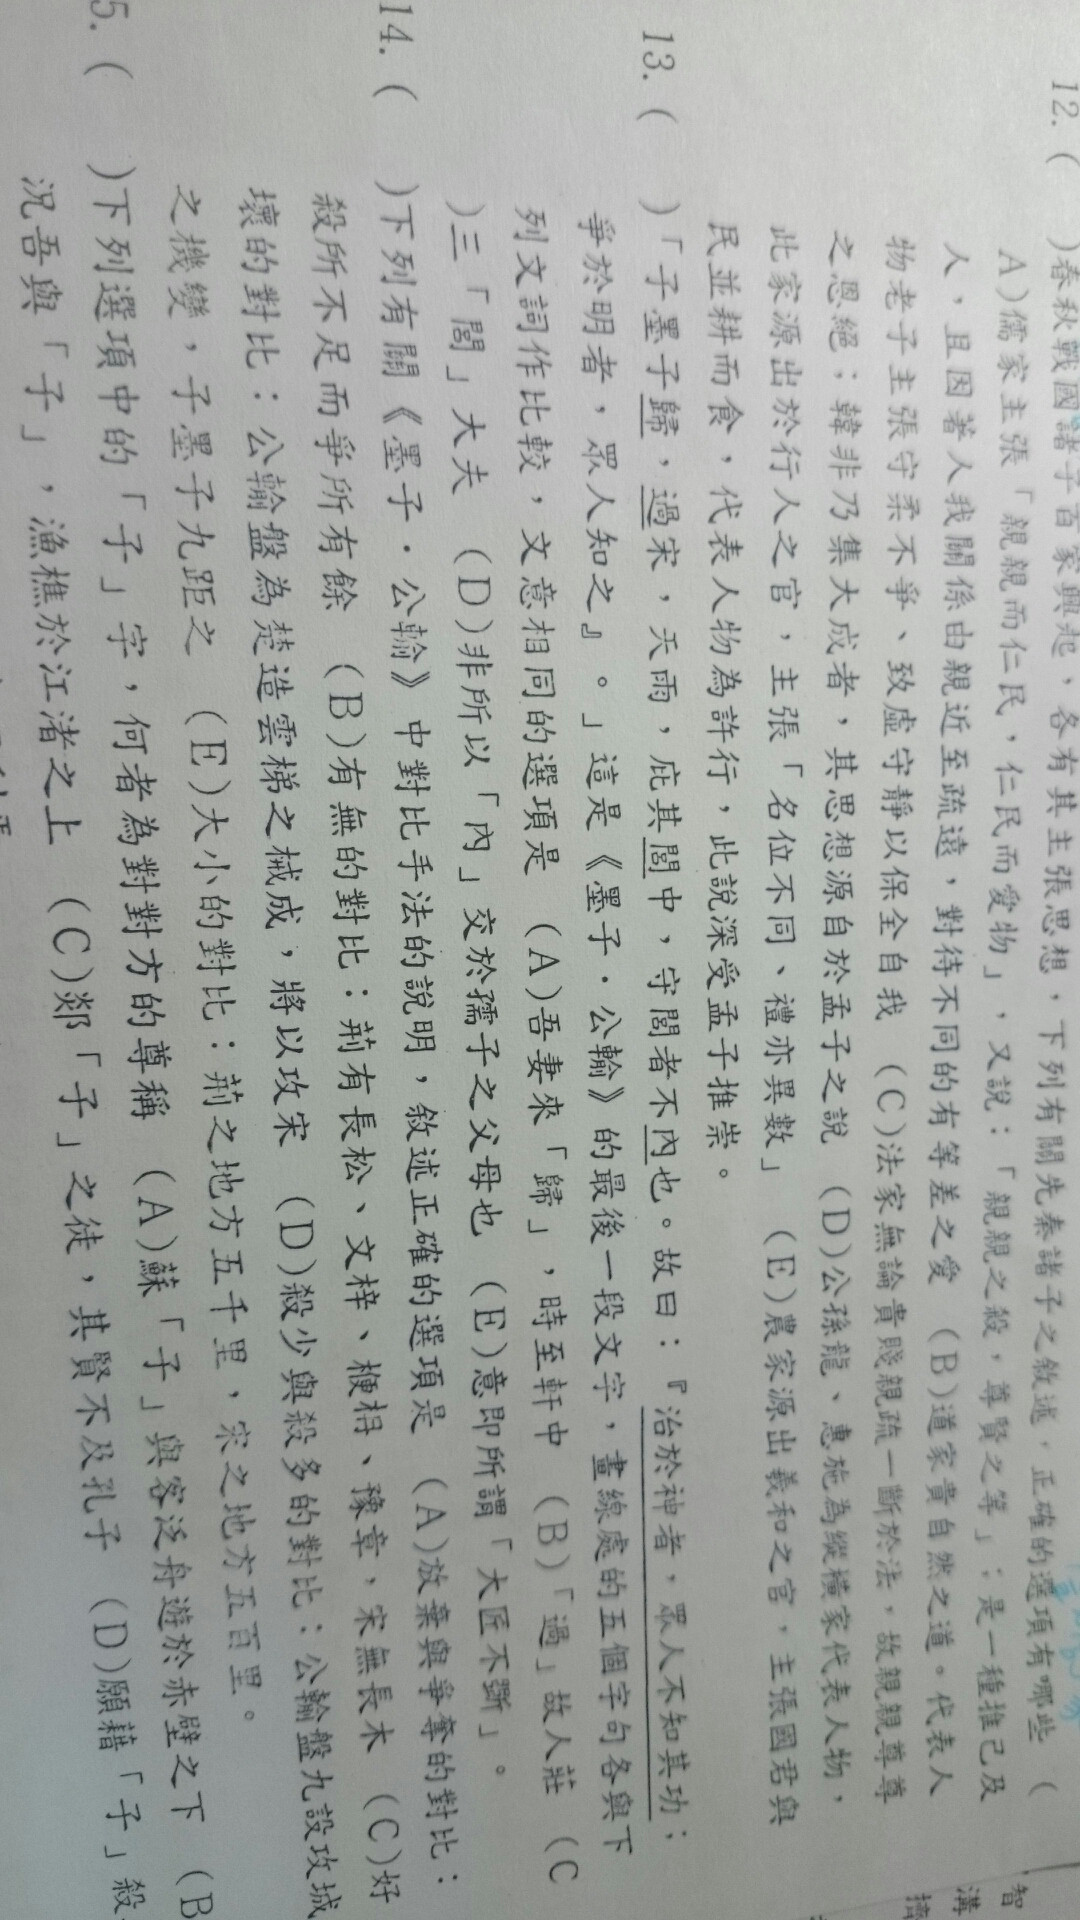 12.(　　)春秋戰國諸子百家興起，各有其主張思想，下列有關先秦諸子之敘述，正確的選項有哪些　(
A)儒家主張「親親而仁民，仁民而愛物」，又說：「親親之殺，尊賢之等」；是一種推己及
人，且因著人我關係由親近至疏遠，對待不同的有等差之愛　(B)道家貴自然之道。代表人
物老子主張守柔不爭、致虛守靜以保全自我　(C)法家無論貴賤親疏一斷於法，故親親尊尊
之恩絕；韓非乃集大成者，其思想源自於孟子之說　(D)公孫龍、惠施為縱橫家代表人物，
此家源出於行人之官，主張「名位不同、禮亦異數」　(E)農家源出羲和之官，主張國君與
民並耕而食，代表人物為許行，此說深受孟子推崇。
13.(　　)「子墨子歸，過宋，天雨，庇其閭中，守閭者不內也。故曰：『治於神者，眾人不知其功；
爭於明者，眾人知之』。」這是《墨子·公輸》的最後一段文字，畫線處的五個字句各與下
列文詞作比較，文意相同的選項是　(A)吾妻來「歸」，時至軒中　(B)「過」故人莊　(C
)三「閭」大夫　(D)非所以「內」交於孺子之父母也　(E)意即所謂「大匠不斲」。
14.(　　)下列有關《墨子·公輸》中對比手法的說明，敘述正確的選項是　(A)放棄與爭奪的對比：
殺所不足而爭所有餘　(B)有無的對比：荊有長松、文梓、楩枏、豫章，宋無長木　(C)好
壞的對比：公輸盤為楚造雲梯之械成，將以攻宋　(D)殺少與殺多的對比：公輸盤九設攻城
之機變，子墨子九距之　(E)大小的對比：荊之地方五千里，宋之地方五百里。
5.(　　)下列選項中的「子」字，何者為對對方的尊稱　(A)蘇「子」與客泛舟遊於赤壁之下　(B
況吾與「子」，漁樵於江渚之上　(C)郯「子」之徒，其賢不及孔子　(D)願藉「子」殺
智
溝